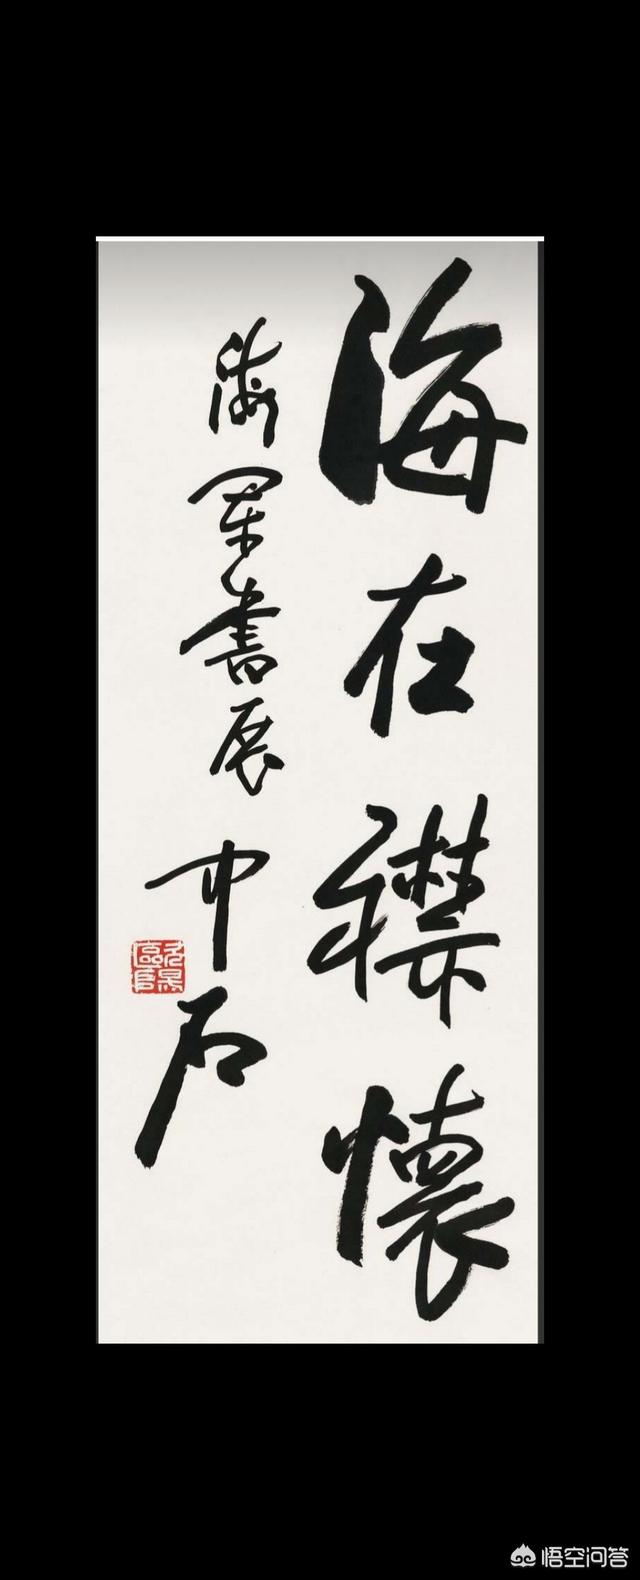 海在襟懷
海军書展 中石
悟空问答